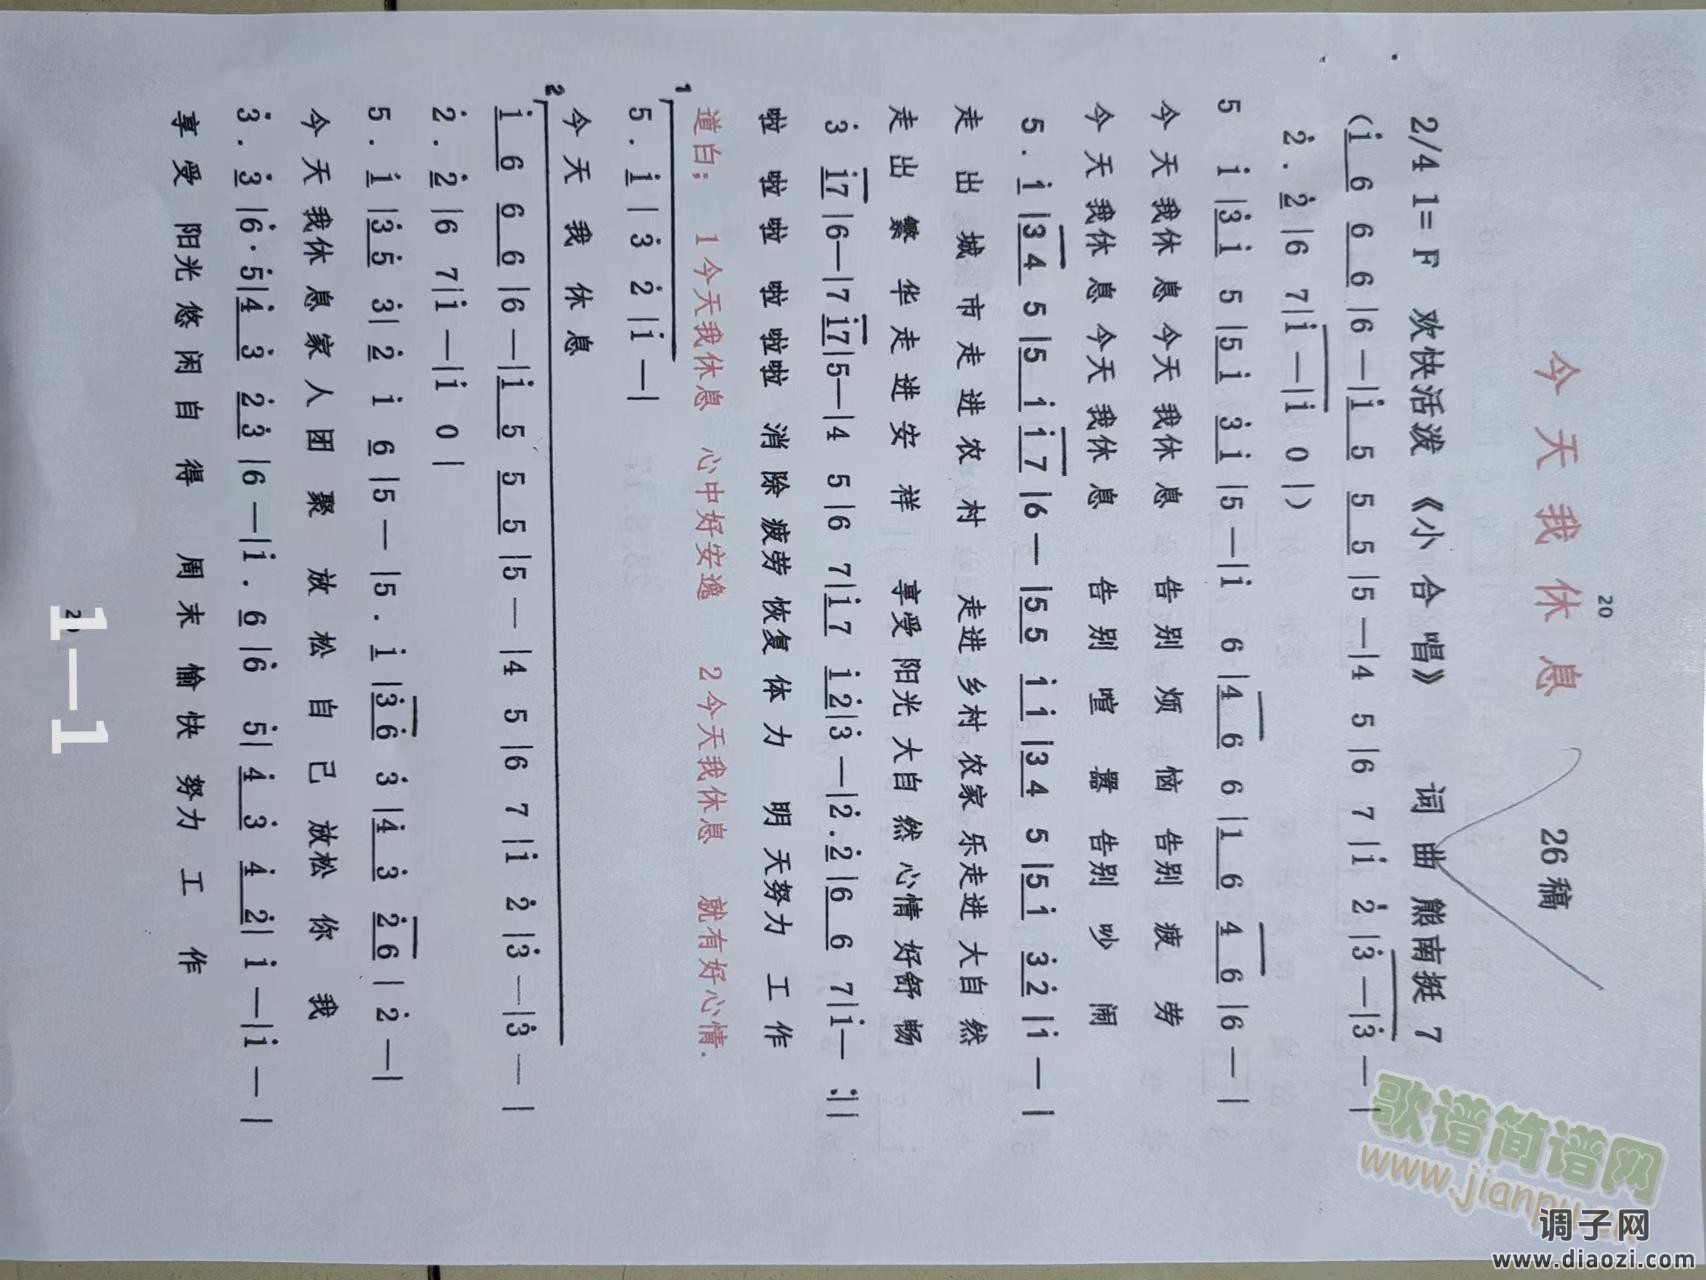 20
今天我休息 26稿
2/4 1= F 欢快活泼 《小合唱》 词曲 熊南挺 7
(i̇ 6 6 6 |6 —|i̇ 5 5 5 |5 —|4 5 |6 7 |i̇ 2̇ |3̇ —|3̇ — |
2̇ . 2̇ |6 7|i̇ —|i̇ 0 |)
5 i̇ |3̇ i̇ 5 |5 i̇ 3̇ i̇ |5 —|i̇ 6 |4 6 6 |1 6 4 6 |6 — |
今天我休息 今天我休息 告别烦恼 告别疲劳
今天我休息 今天我休息 告别喧嚣 告别吵闹
5 . i̇ |3 4 5 |5 i̇ i̇ 7 |6 — |5 5 i̇ i̇ |3 4 5 |5 i̇ 3̇ 2̇ |i̇ — |
走出城市走进农村 走进乡村农家乐走进大自然
走出繁华走进安祥 享受阳光大自然心情好舒畅
3̇ i̇7 |6—|7 i̇7|5—|4 5 |6 7|i̇ 7 i̇ 2̇|3̇ —|2̇ . 2̇ |6 6 6 7|i̇— :||
啦啦啦啦啦啦 消除疲劳恢复体力 明天努力工作
道白; 1今天我休息 心中好安逸 2今天我休息 就有好心情.
1
5 . i̇ | 3̇ 2̇ |i̇ —|
今天我休息
2
i̇ 6 6 6 |6 —|i̇ 5 5 5 |5 — |4 5 |6 7 |i̇ 2̇ |3̇ —|3̇ — |
2̇ . 2̇ |6 7|i̇ —|i̇ 0 |
5 . i̇ |3̇ 5̇ 3̇| 2̇ i̇ 6 |5 — |5 . i̇ |3̇ 6̇ 3̇ |4̇ 3̇ 2̇ 6 | 2̇ —|
今天我休息家人团聚 放松自己放松你我
3̇ . 3̇ |6̇ . 5̇|4̇ 3̇ 2̇ 3̇ |6 —|i̇ . 6 |6̇ 5̇| 4̇ 3̇ 4̇ 2̇| i̇ —|i̇ — |
享受阳光悠闲自得 周末愉快努力工作
1—1
歌谱简谱网
调子网
www.diaozi.com